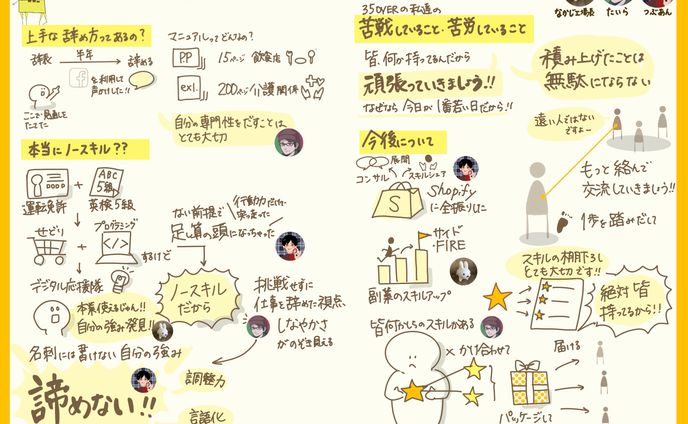 上手な辞め方ってあるの?
辞表
半年
辞める
を利用して
声かけした!!
ここで見直しを
たてた
マニュアルってどんなの?
PP
15ページ 飲食店
exl.
200ページ 介護関係
自分の専門性をだすことは
とても大切
本当にノースキル??
運転免許
+
ABC
5級
英検5級
せどり
+
プログラミング
するけど
デジタル応援隊
本業使えるじゃん!!
自分の強み発見!!
名刺には書けない自分の強み
諦めない!!
ない前提で
行動力だけで
突っ走った
足し算の頭になっちゃった
ノースキル
だから
挑戦せずに
仕事を辞めた視点
しなやかさ
がのぞき見える
調整力
言語化
なかじ工場長
たいら
つぶあん
35OVERの私達の
苦戦していること・苦労していること
皆何か持ってるんだから
頑張っていきましょう!!
なぜなら今日が1番若い日だから!!
積み上げたことは
無駄にならない
遠い人ではない
ですよー
もっと絡んで
交流していきましょう!!
1歩を踏みだして
今後について
展開
コンサル
スキルシェア
S
Shopify
に全振りした
サイド
・FIRE
副業のスキルアップ
スキルの棚下ろし
とても大切です!!
絶対皆
持ってるから!!
皆何かしらのスキルがある
× かけ合わせて
パッケージして
届ける